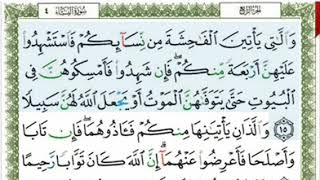 الجزء الرابع ٤ سورة النساء
وَالَّٰتِي يَأْتِينَ الْفَاحِشَةَ مِن نِّسَآئِكُمْ فَاسْتَشْهِدُوا
عَلَيْهِنَّ أَرْبَعَةً مِّنكُمْ فَإِن شَهِدُوا فَأَمْسِكُوهُنَّ فِي
الْبُيُوتِ حَتَّىٰ يَتَوَفَّاهُنَّ الْمَوْتُ أَوْ يَجْعَلَ اللَّهُ لَهُنَّ سَبِيلًا
١٥ وَالَّذَانِ يَأْتِيَانِهَا مِنكُمْ فَآذُوهُمَا فَإِن تَابَا
وَأَصْلَحَا فَأَعْرِضُوا عَنْهُمَآ إِنَّ اللَّهَ كَانَ تَوَّابًا رَّحِيمًا